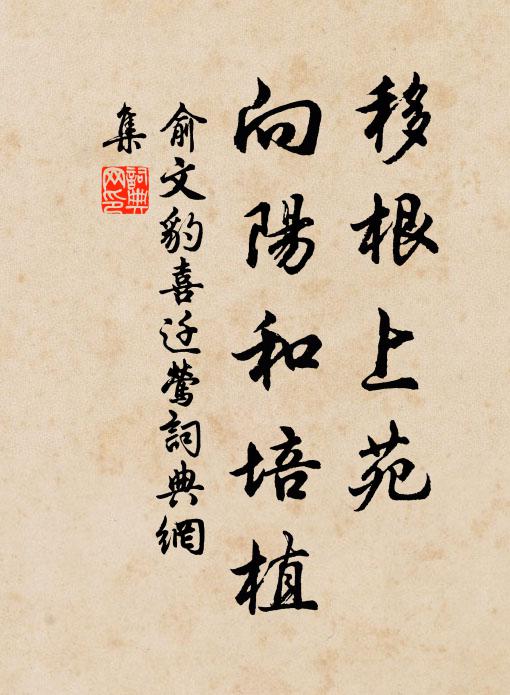 移根上苑
向陽和培植
俞文豹喜迁鶯詞典網
集
詞典
网印